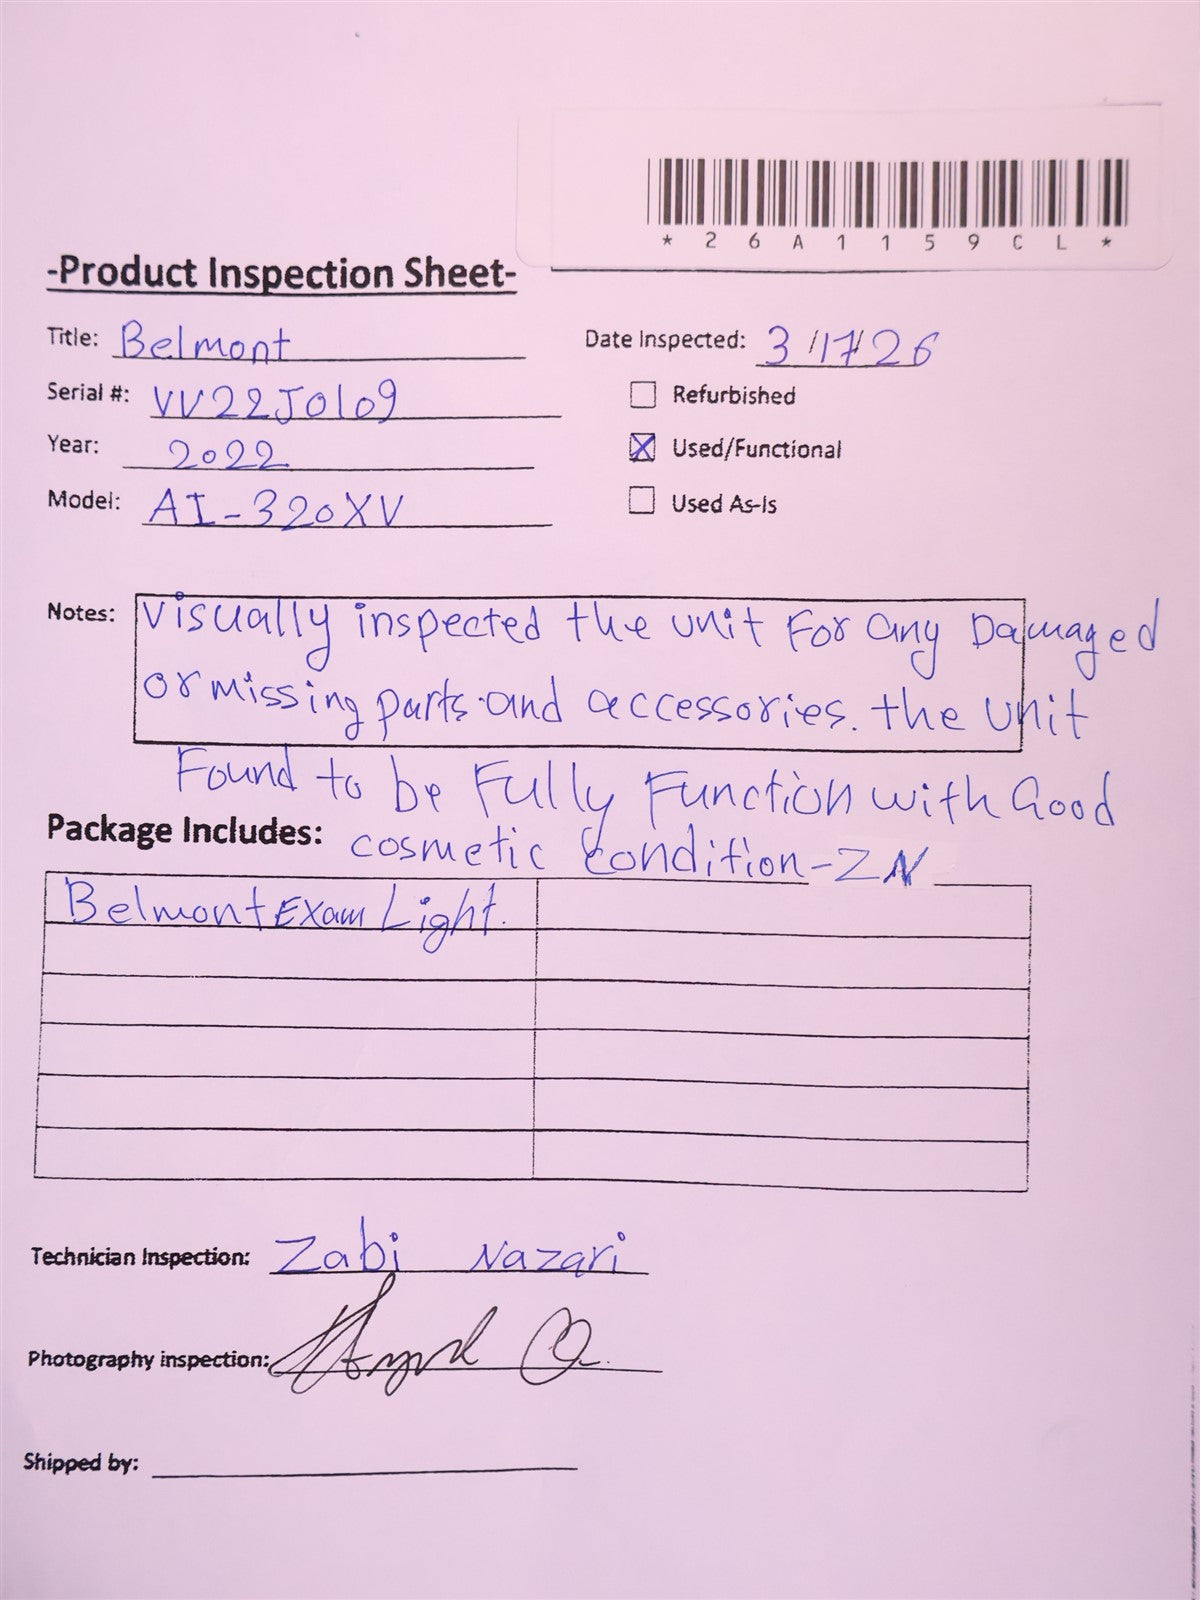 *26A1159CL*
-Product Inspection Sheet-
Title: Belmont
Date Inspected: 3/17/26
Serial #: VV22J0109
Refurbished
Year: 2022
Used/Functional
Model: AI-320XV
Used As-Is
Notes: Visually inspected the unit For any Damaged
or missing parts and accessories. the unit
Found to be Fully Function with Good
Package Includes: cosmetic condition-ZN
Belmont Exam Light.
Technician Inspection: Zabi Nazari
Photography inspection:
Shipped by: